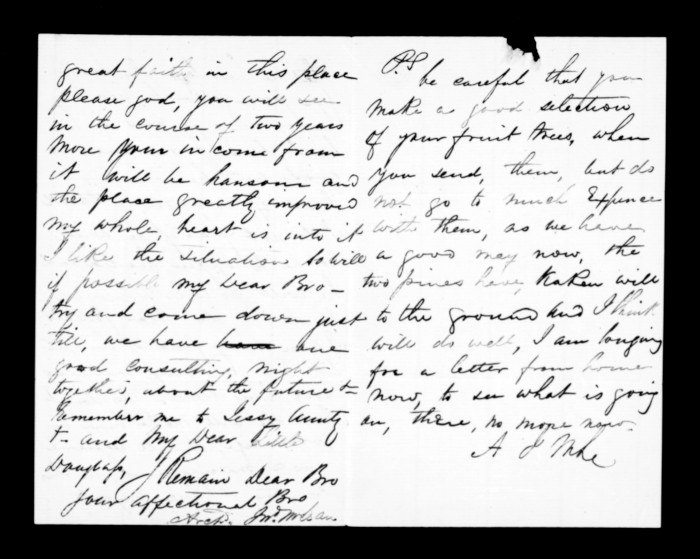 great faith in this place
please god, you will see
in the course of two years
more your income from
it will be hansom and
the place greatly improved
my whole, heart is into it
I like the situation so will
if possible my Dear Bro —
try and come down just
till, we have have one
good consulting, night
together, about the future &
Remember me to Jessy Aunty
& and My Dear little
Douglass, I Remain Dear Bro
your affectional Bro
Arch. Jno.
P.S
be careful that you
make a good selection
of your fruit trees, when
you send, them, but do
not go to much Expence
with them, as we have
a good may now, the
two pines have, taken will
to the ground and I think
will do well, I am longing
for a letter from home
now, to see what is going
on, there, no more now.
A J